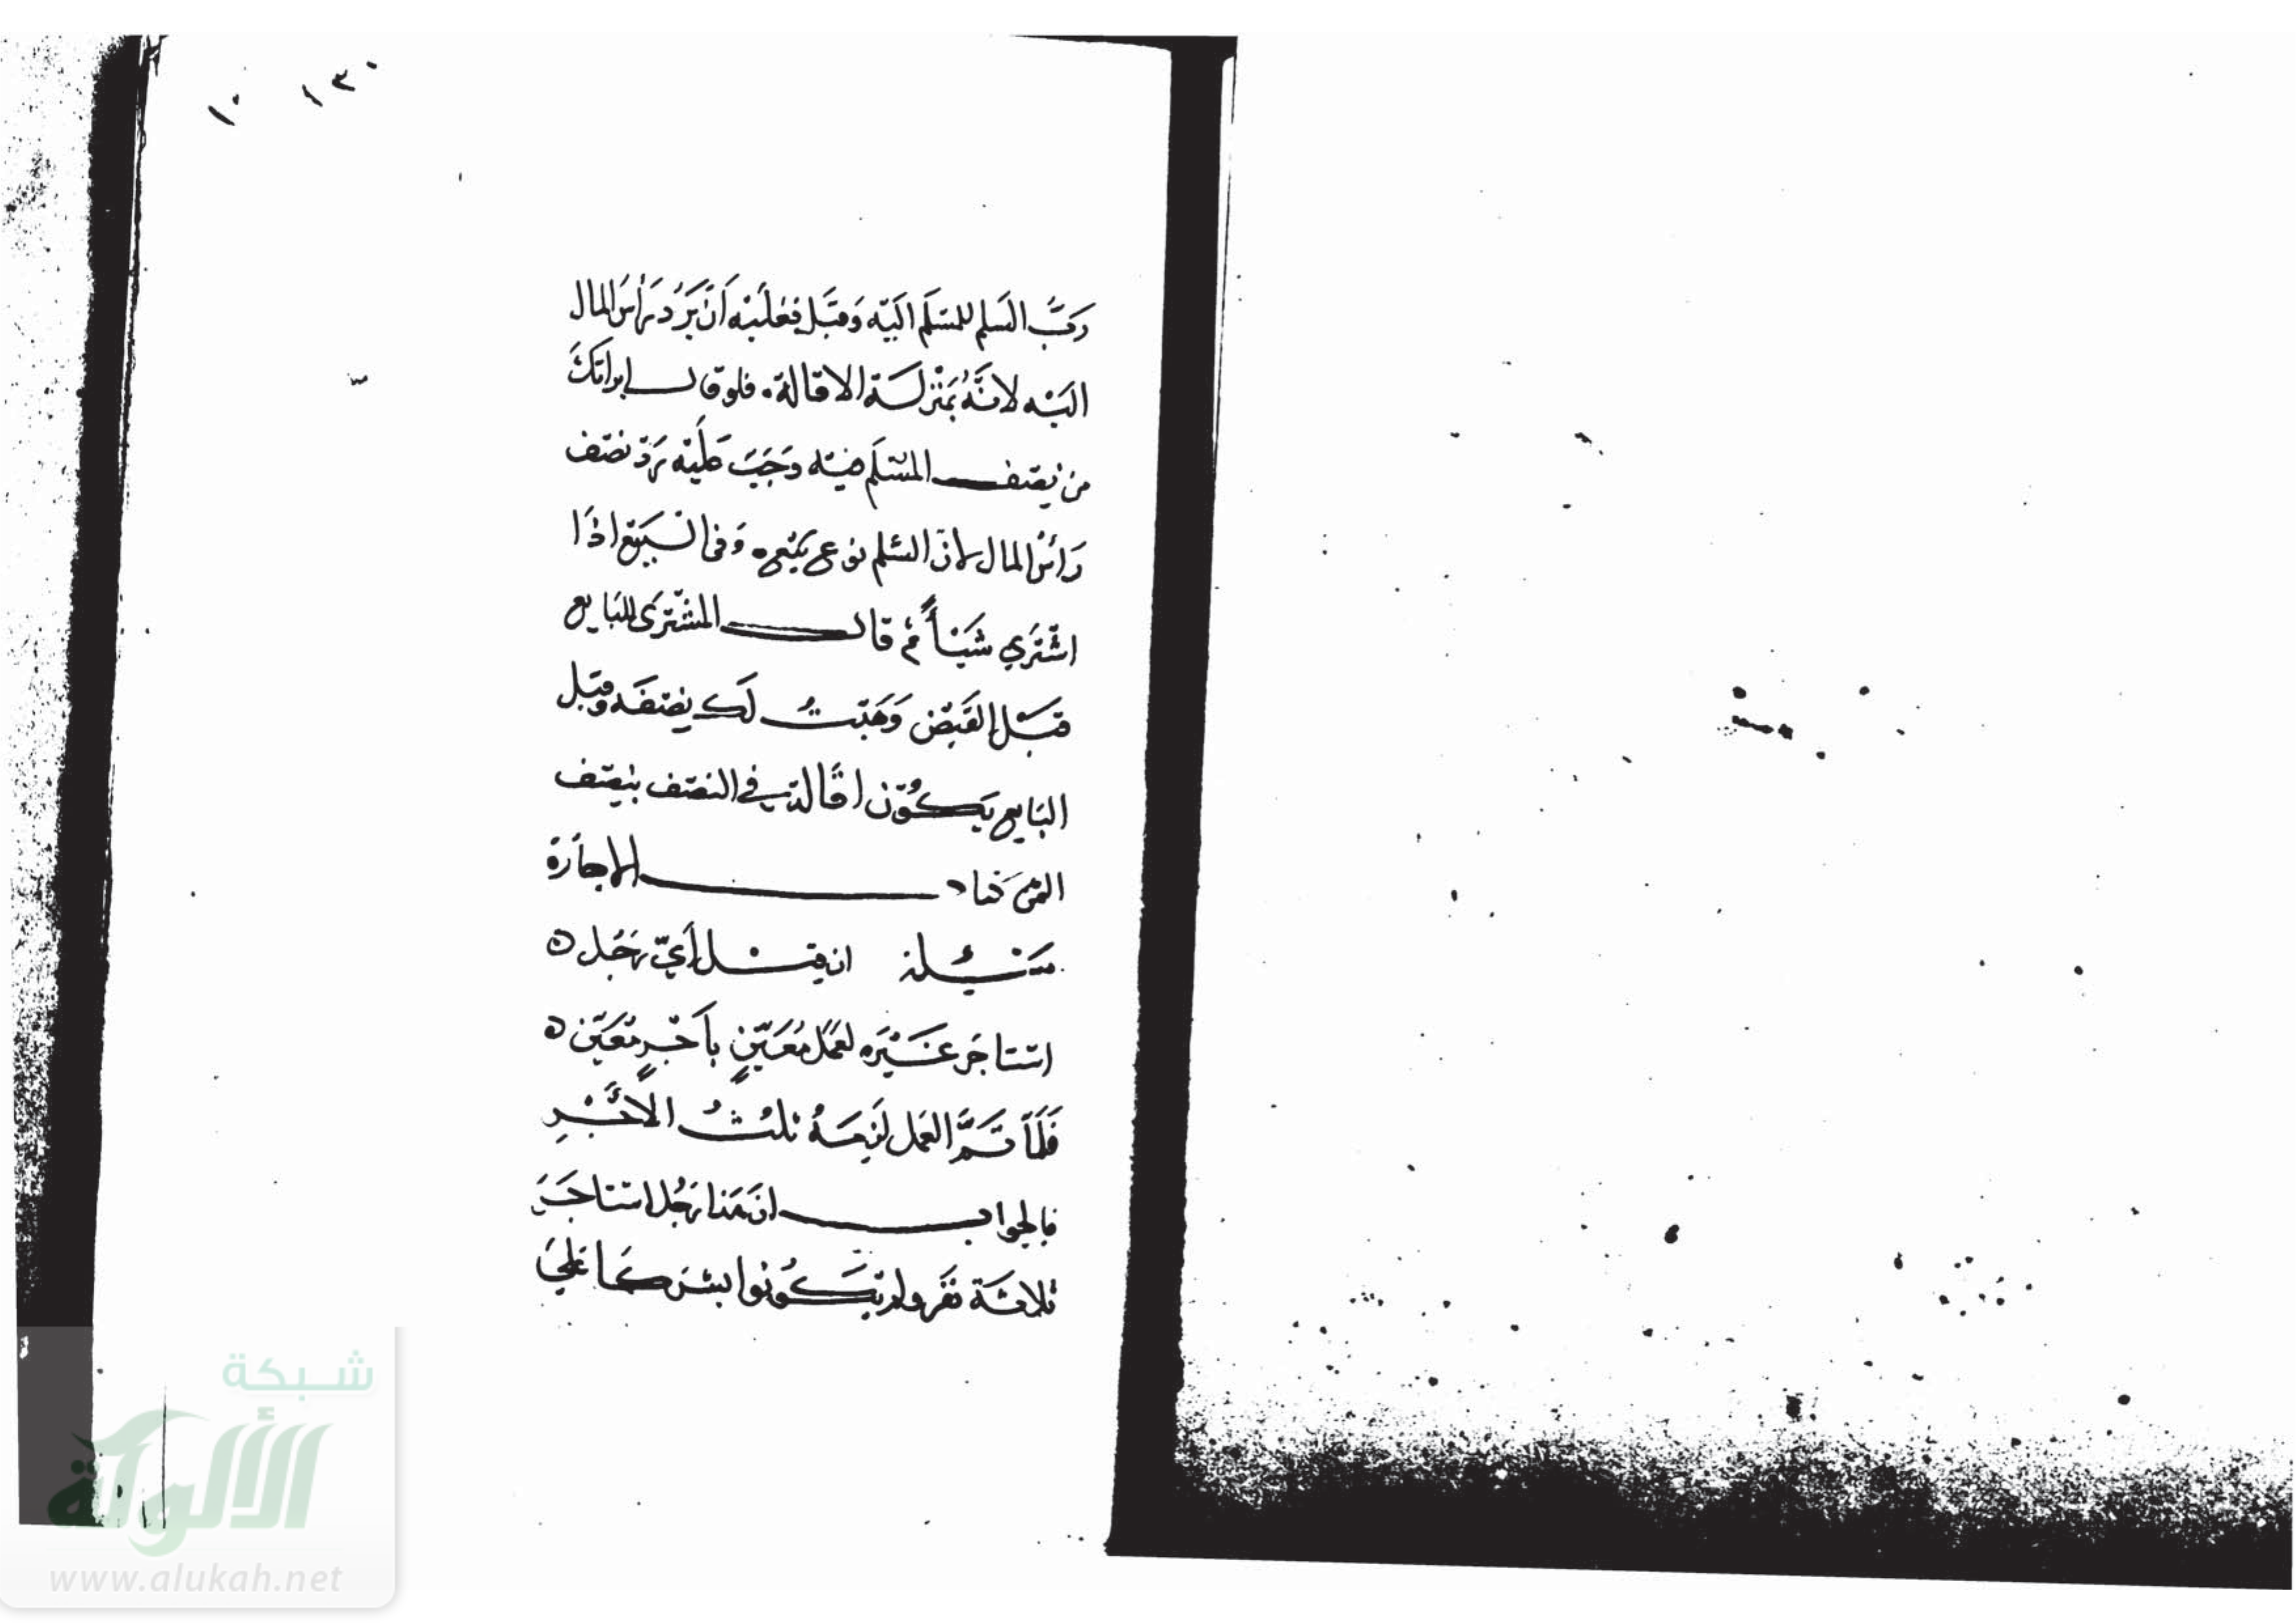 ١٣٠ ١٠
رَبُّ السَّلم للمسْلَم اليْه وَقبَل فعَليْه أنْ يَرُدَ رَأسَ المال
اليْه لانَّهُ بمَنْزلَة الاقالة. فلوقال ابراتكَ
من نصْف المسْلَم فيْه وَجَبَ عَليْه رَدّ نصْف
رَأسُ المال لانّ السَّلم نوع بيْع. وَفي البيْع اذَا
اشْتَري شَيْأً ثم قال المشْتَرى للبَايع
قبْل القَبْض وَهَبْتُ لَكَ نِصْفَه وقبل
البَايع يَكُوْن اقَالة في النصْف بنِصْف
الثمَن كتاب الاجارة
مَسْئلة ان قيْل أيّ رَجُل
اسْتاجَر غَيْرَه لعَمَل مُعَيَّنٍ بأجْرٍ مُعَيَّن
فَلَمّا تَمَّ العَمَل لَزِمَهُ ثلثُ الأجْرِ
فالجواب انَ هَذا رَجُل اسْتاجَرَ
ثلاثة نفَر ولم يَكُونُوا شركَاءَ عَلى
شبكة
الألوكة
www.alukah.net